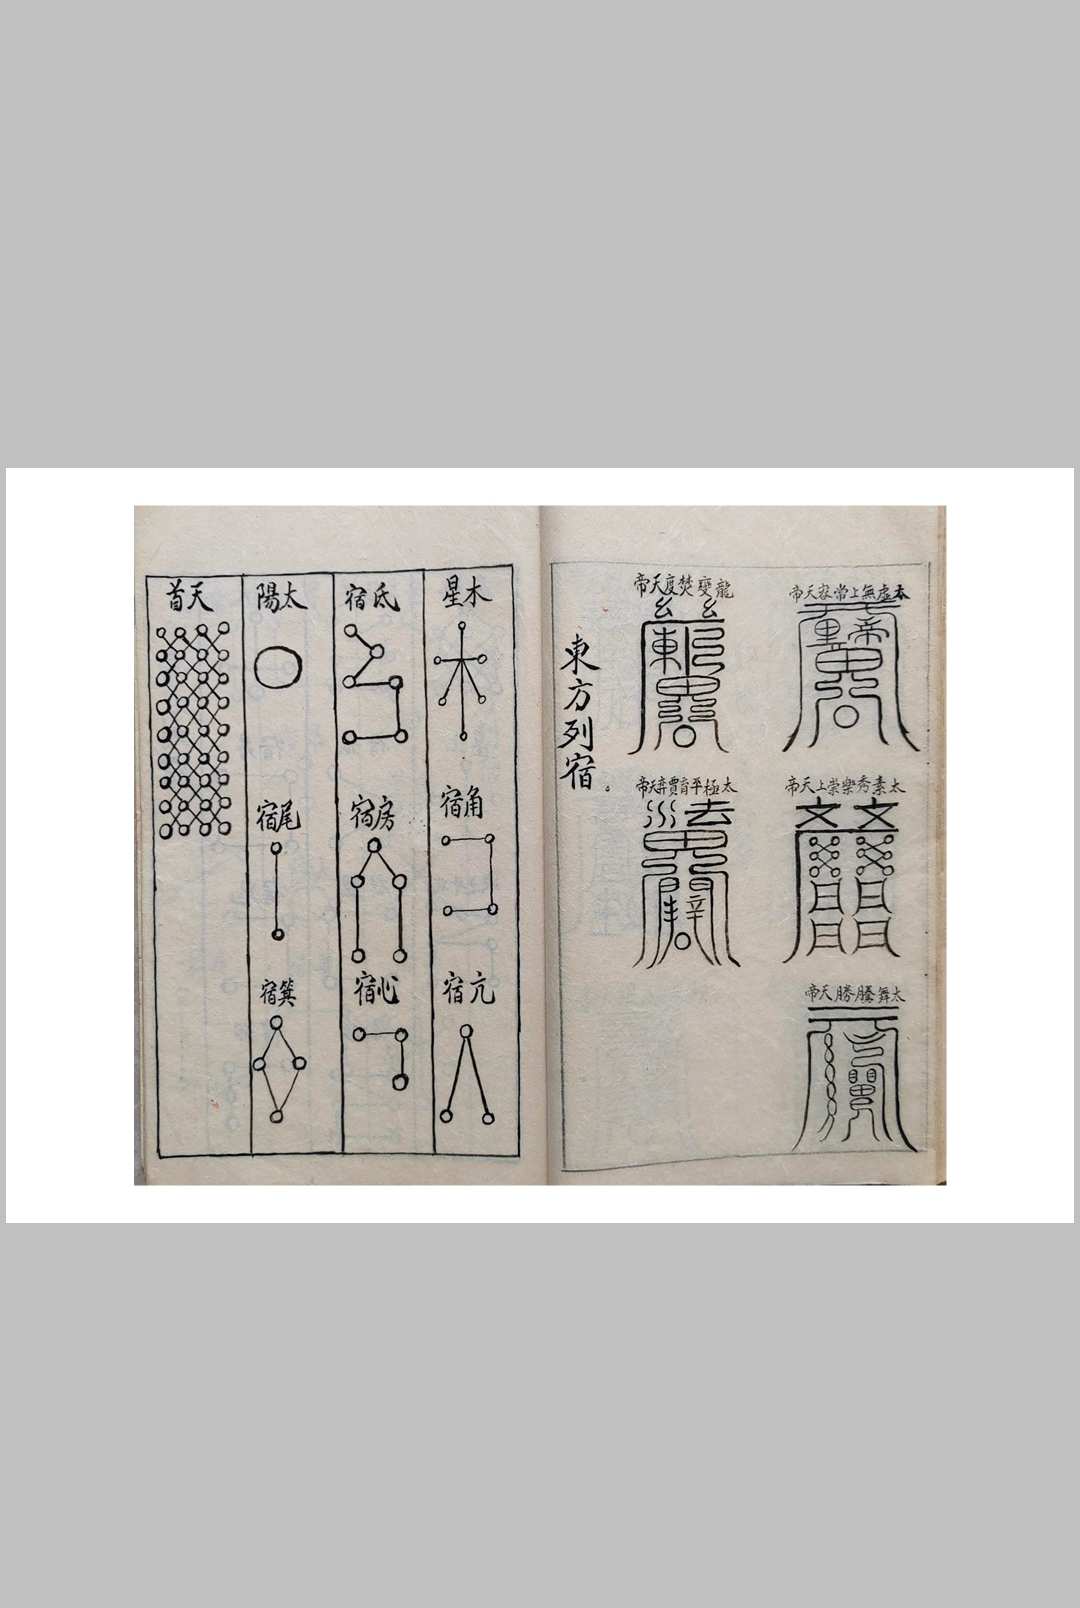 太虛無上常容天帝
太素秀樂禁上天帝
太舞騰勝天帝
龍變梵度天帝
太極平育賈奕天帝
東方列宿。
木星
角宿
亢宿
氐宿
房宿
心宿
太陽
尾宿
箕宿
天首